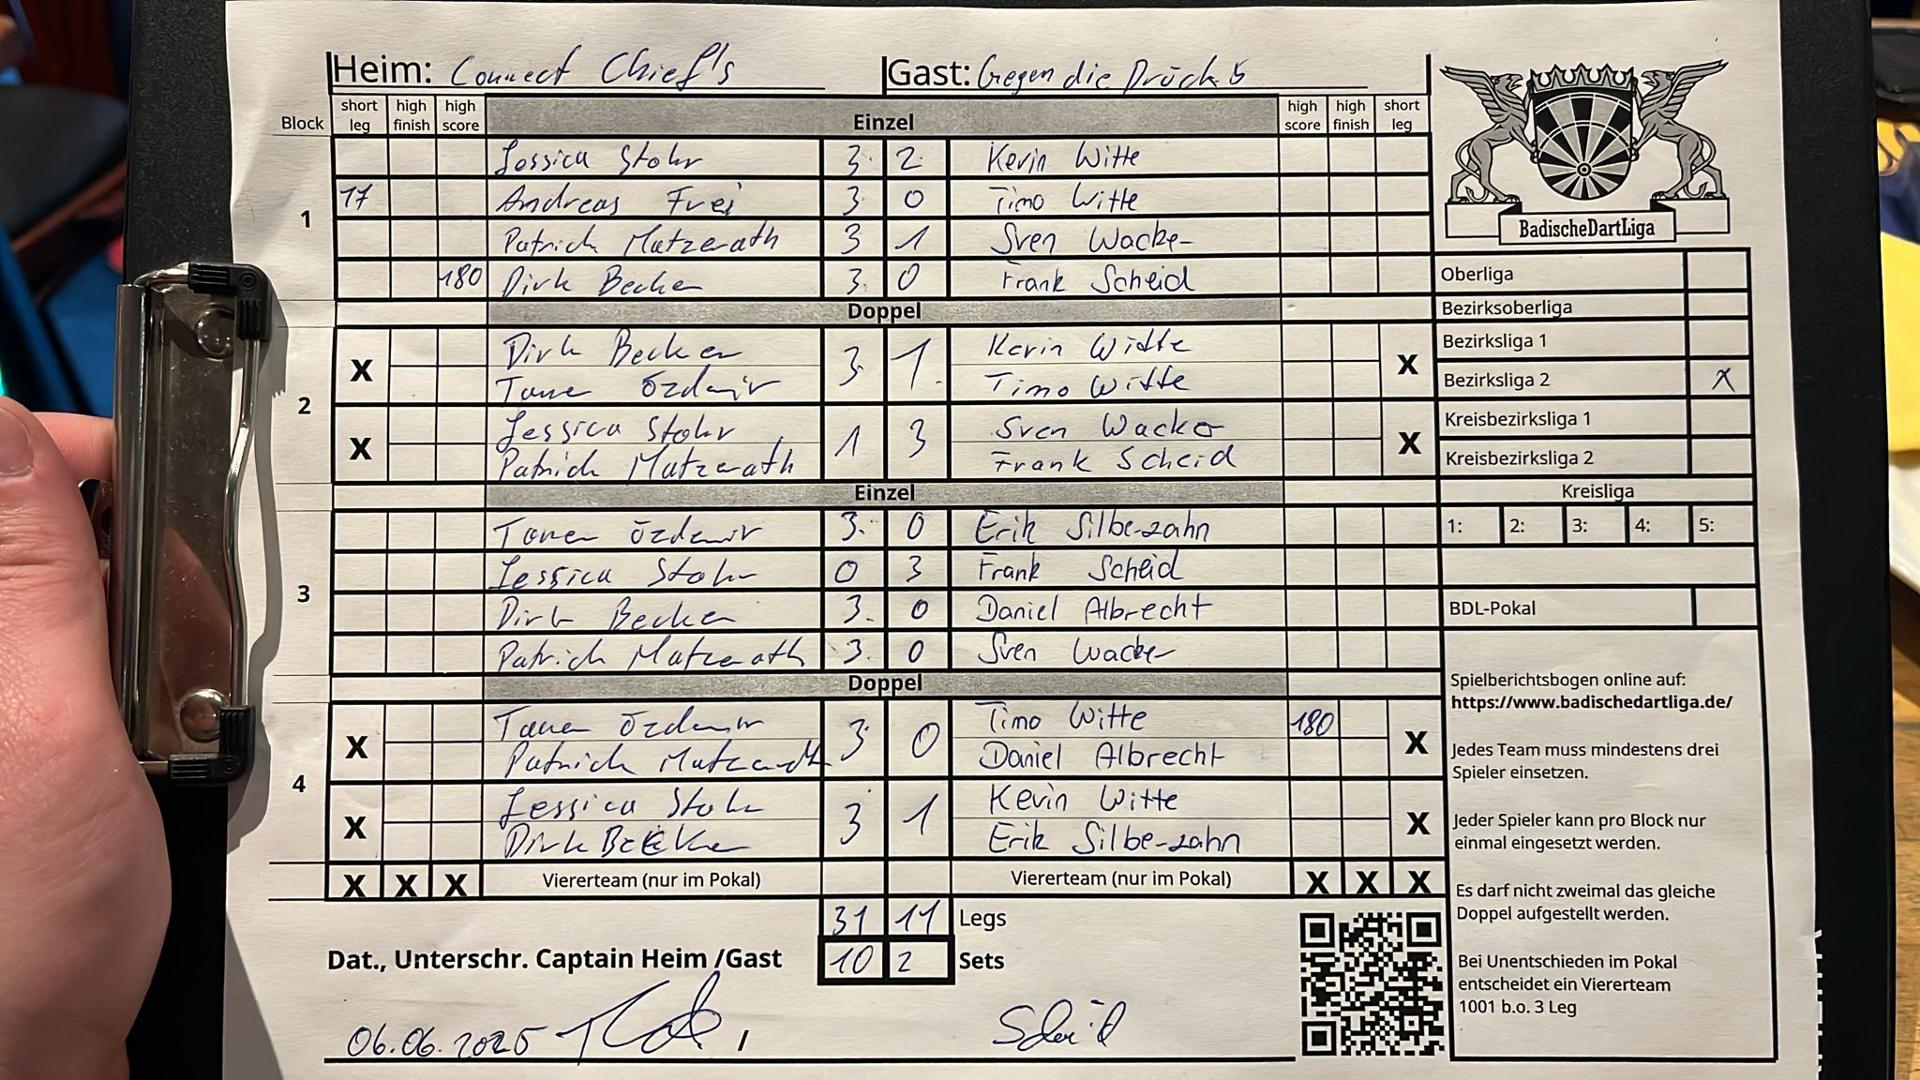 Heim: Connect Chief's Gast: Gegen die Drück 5
Block short leg high finish high score Einzel high score high finish short leg
1
Jessica Stohr 3 2 Kevin Witte
17 Andreas Frei 3 0 Timo Witte
Patrick Matzerath 3 1 Sven Wacker
180 Dirk Becker 3 0 Frank Scheid
Doppel
2
X Dirk Becker 3 1 Kevin Witte X
Taner Özdemir Timo Witte
X Jessica Stohr 1 3 Sven Wacker X
Patrick Matzerath Frank Scheid
Einzel
3
Taner Özdemir 3 0 Erik Silberzahn
Jessica Stohr 0 3 Frank Scheid
Dirk Becker 3 0 Daniel Albrecht
Patrick Matzerath 3 0 Sven Wacker
Doppel
4
X Taner Özdemir 3 0 Timo Witte 180 X
Patrick Matzerath Daniel Albrecht
X Jessica Stohr 3 1 Kevin Witte X
Dirk Becker Erik Silberzahn
X X X Viererteam (nur im Pokal) Viererteam (nur im Pokal) X X X
31 11 Legs
Dat., Unterschr. Captain Heim /Gast 10 2 Sets
06.06.2025 Scheid
BadischeDartLiga
Oberliga
Bezirksoberliga
Bezirksliga 1
Bezirksliga 2 X
Kreisbezirksliga 1
Kreisbezirksliga 2
Kreisliga
1: 2: 3: 4: 5:
BDL-Pokal
Spielberichtsbogen online auf:
https://www.badischedartliga.de/
Jedes Team muss mindestens drei
Spieler einsetzen.
Jeder Spieler kann pro Block nur
einmal eingesetzt werden.
Es darf nicht zweimal das gleiche
Doppel aufgestellt werden.
Bei Unentschieden im Pokal
entscheidet ein Viererteam
1001 b.o. 3 Leg